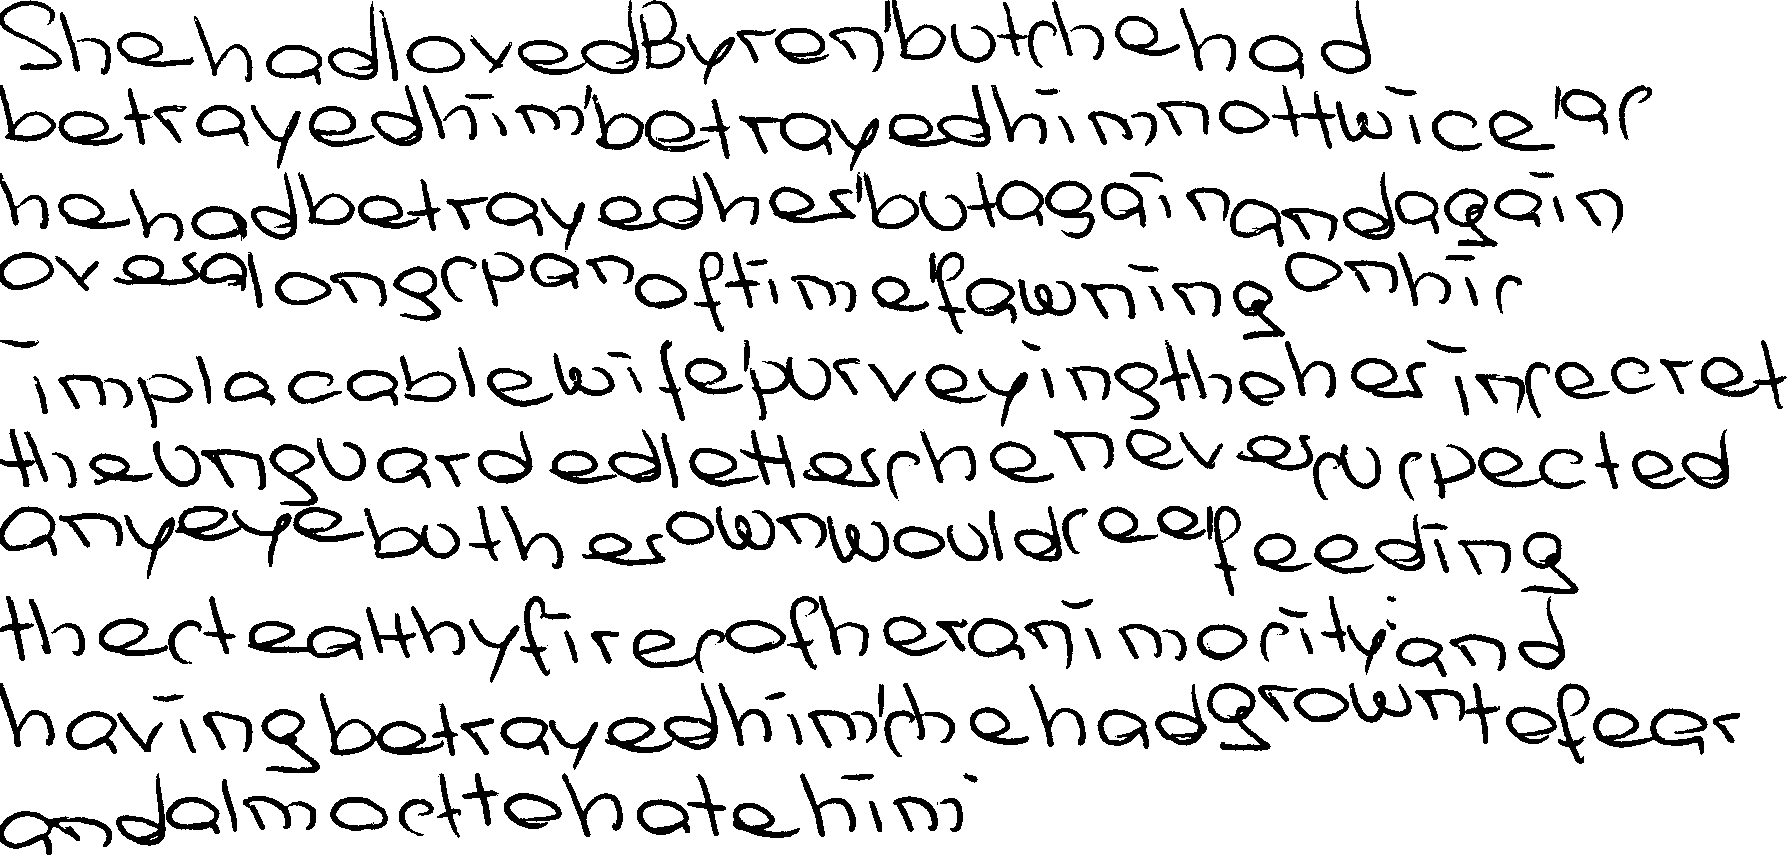 She had loved Byron, but she had
betrayed him, betrayed him not twice, as
he had betrayed her, but again and again
over a long span of time, fawning on his
implacable wife, purveying tho her in secret
the unguarded letters she never suspected
any eye but her own would see, feeding
the stealthy fires of her animosity; and
having betrayed him, she had grown to fear
and almost to hate him.